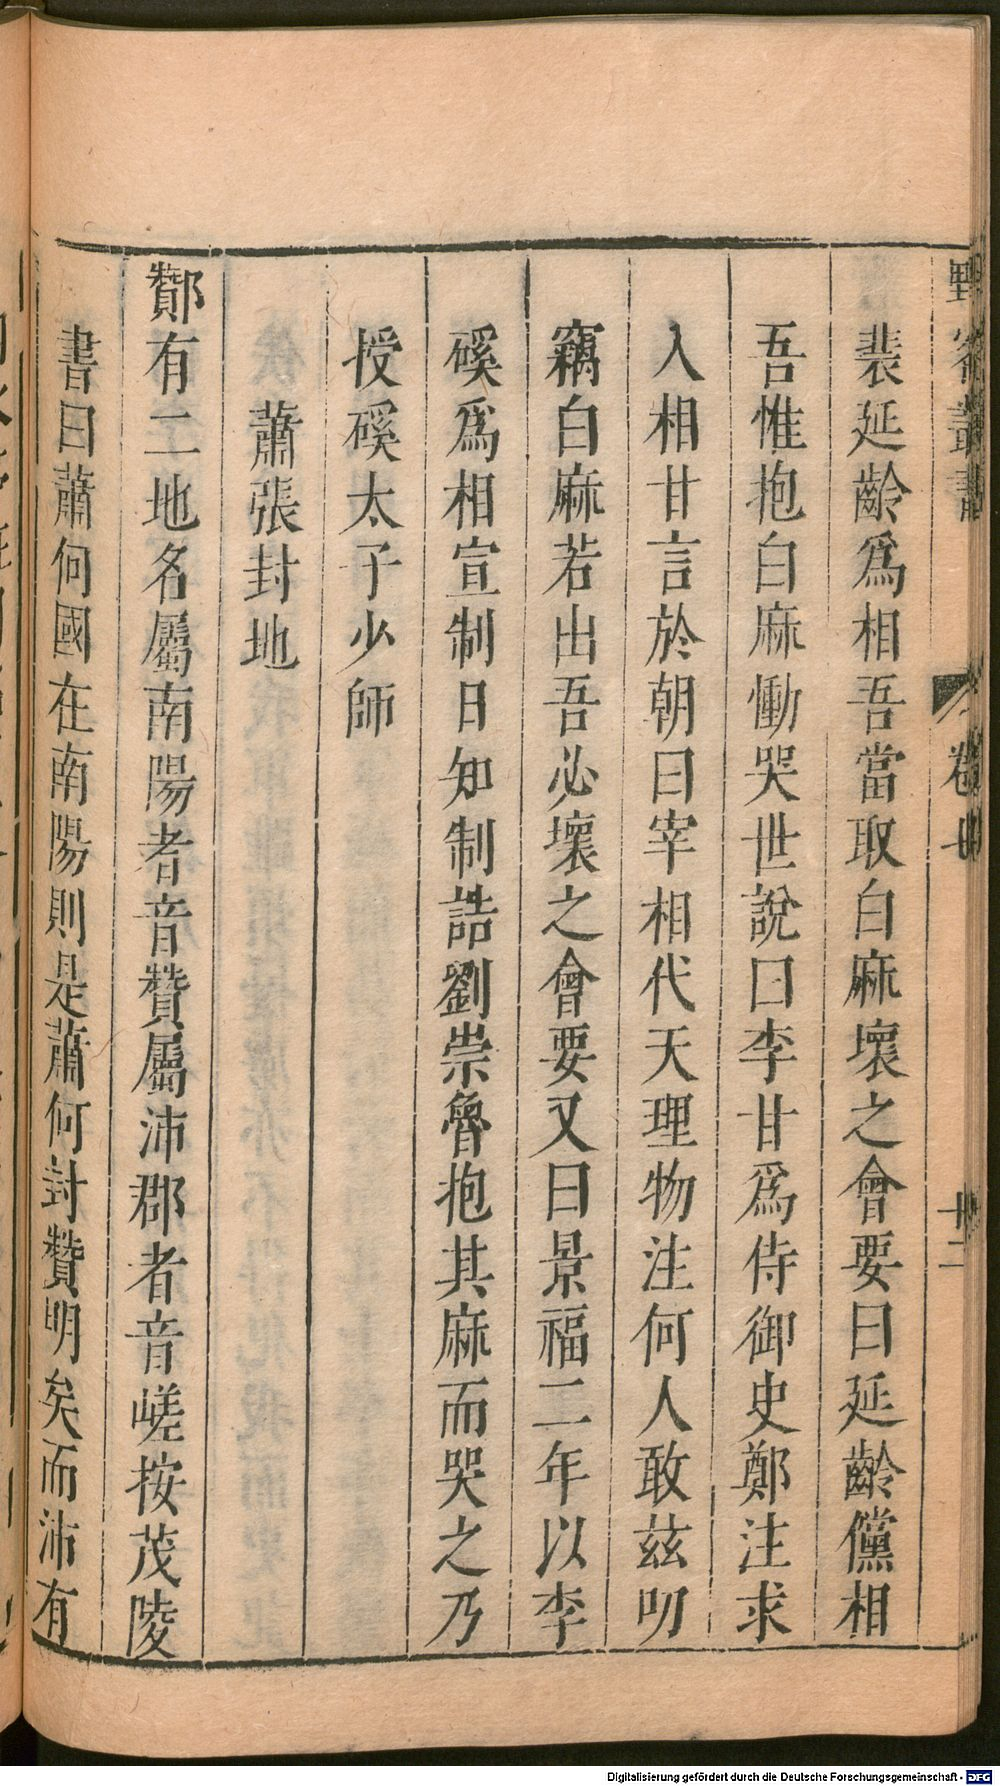 裴延齡爲相吾當取白麻壞之會要曰延齡儻相
吾惟抱白麻慟哭世說曰李甘爲侍御史鄭注求
入相甘言於朝曰宰相代天理物注何人敢茲叨
竊白麻若出吾必壞之會要又曰景福二年以李
磎爲相宣制日知制誥劉崇魯抱其麻而哭之乃
授磎太子少師
蕭張封地
酇有二地名屬南陽者音贊屬沛郡者音嵯按茂陵
書曰蕭何國在南陽則是蕭何封贊明矣而沛有
Digitalisierung gefördert durch die Deutsche Forschungsgemeinschaft - DFG